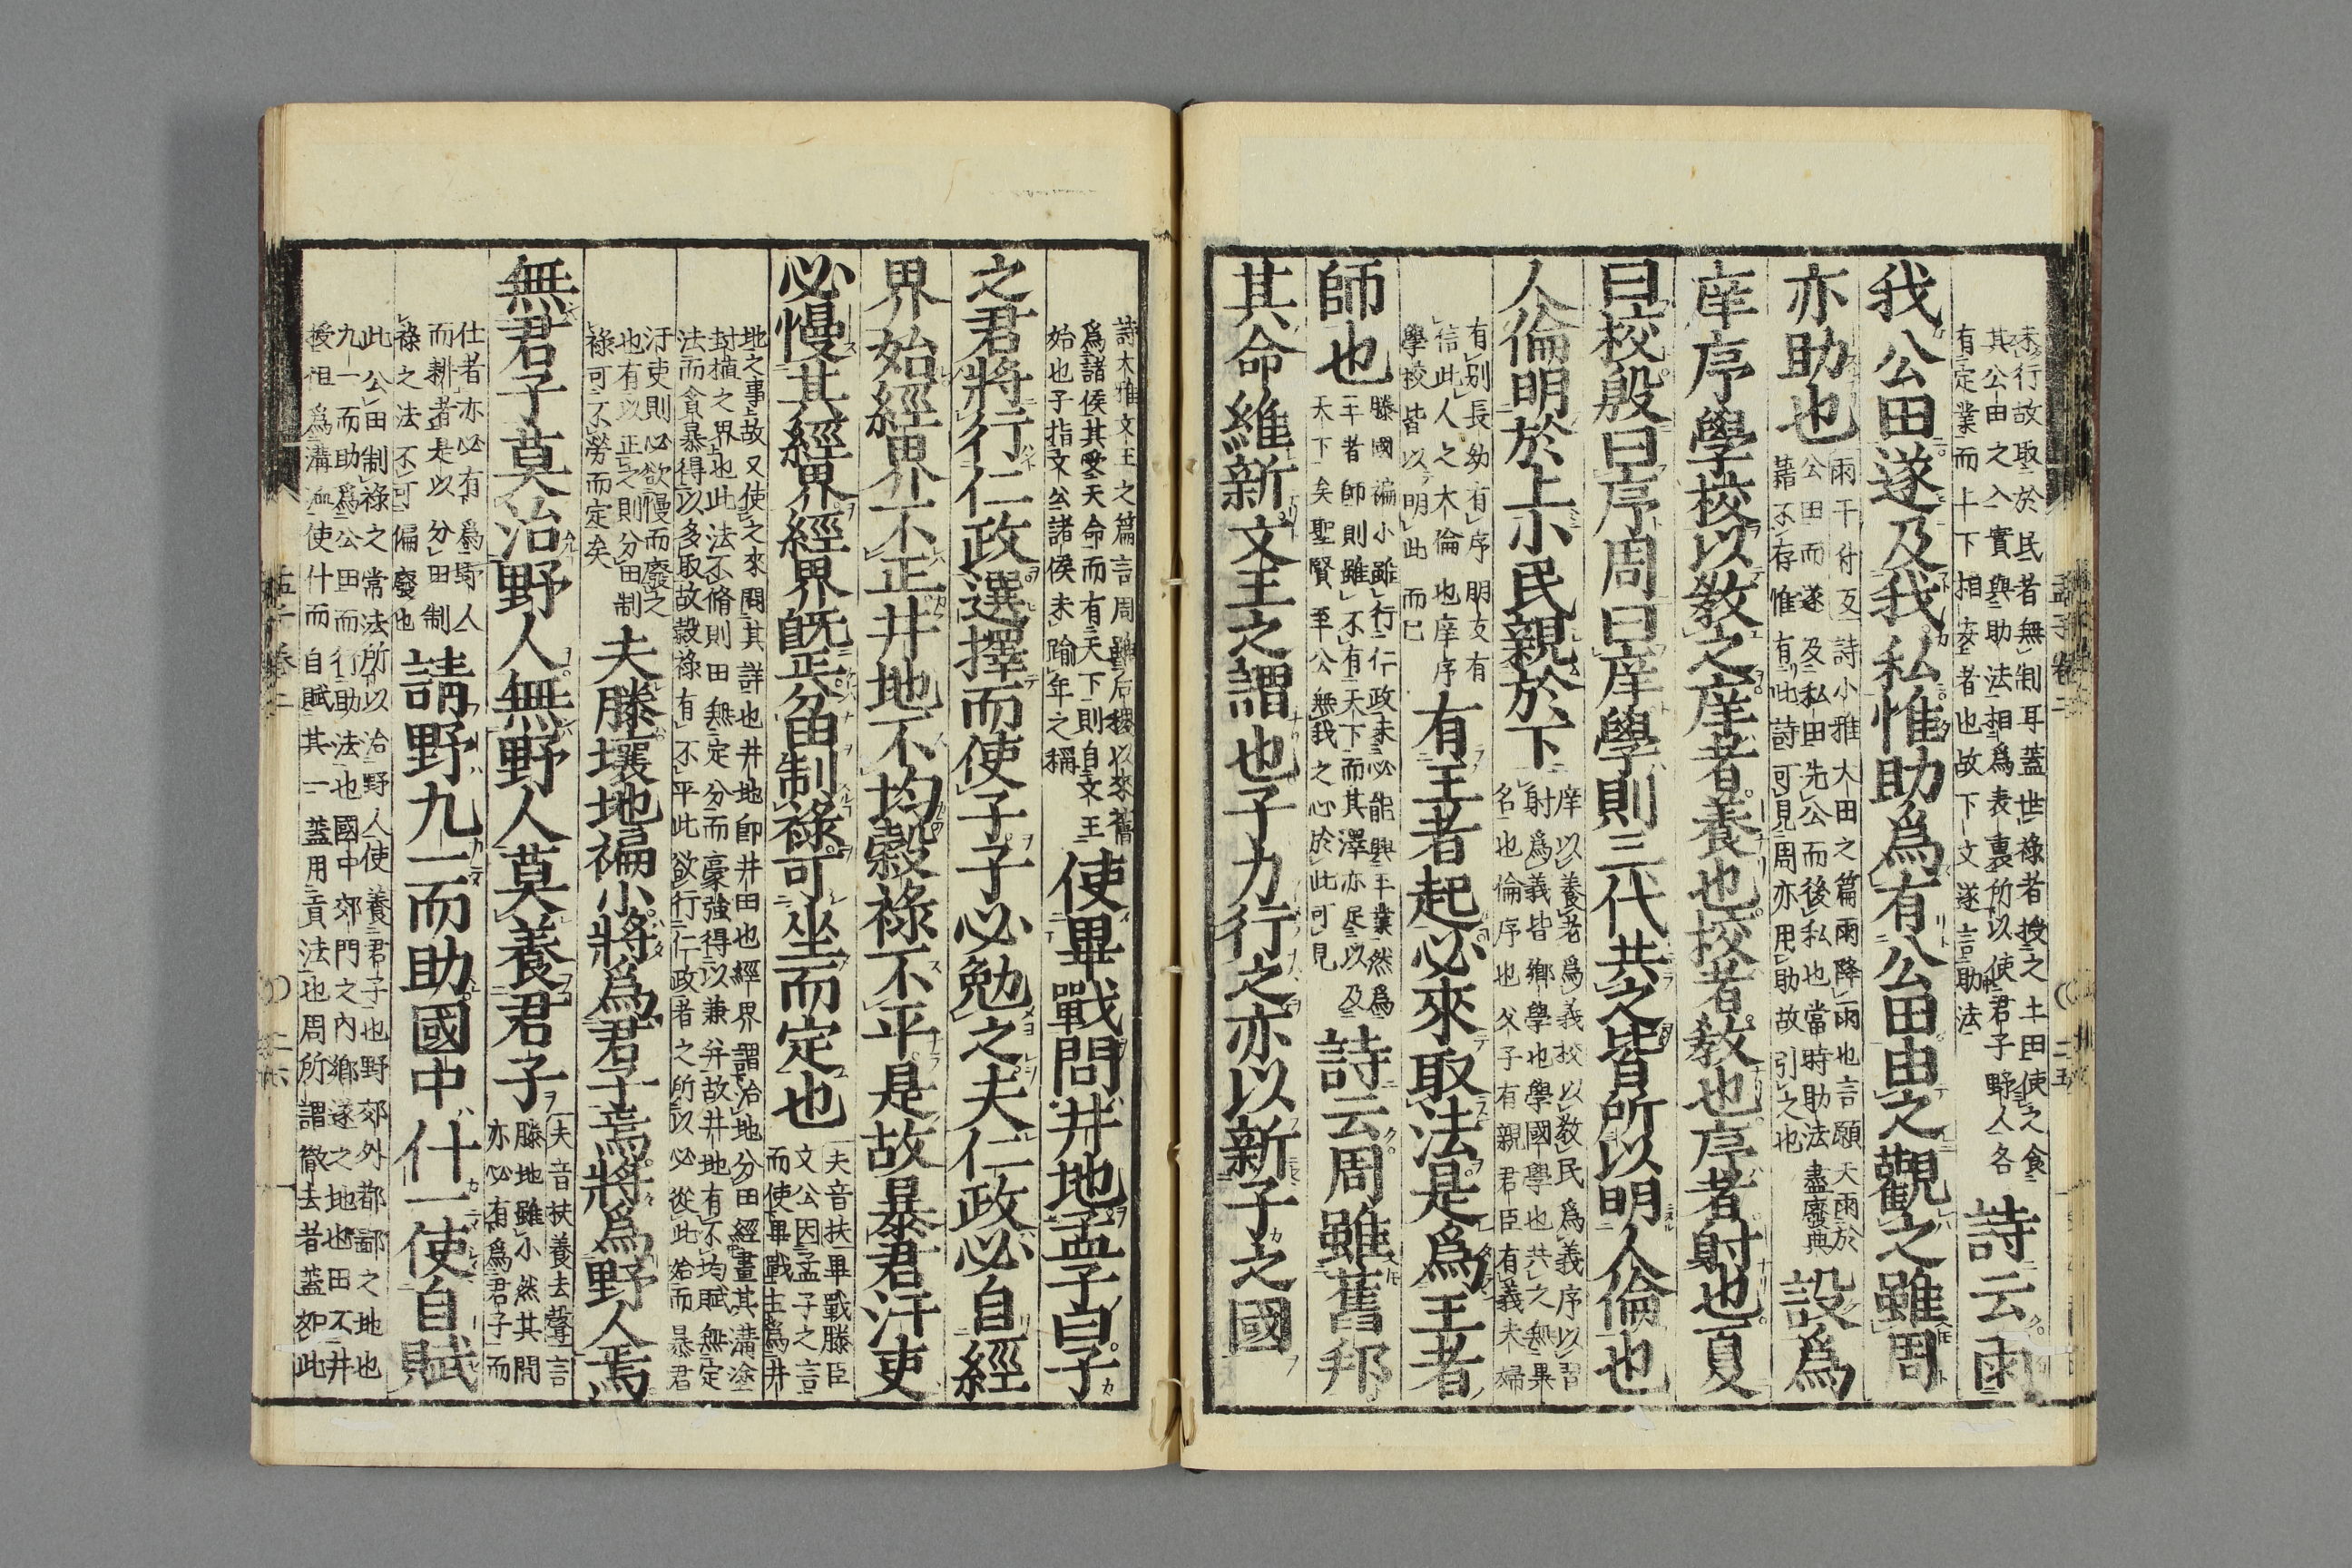 孟子卷二 二五
未行故取於民者無制耳蓋世祿者授之土田使之食
其公田之入實與助法相爲表裏所以使君子野人各
有定業而上下相安者也故下文遂言助法
詩云雨
我公田遂及我私惟助爲有公田由之觀之雖周
亦助也
雨于付反詩小雅大田之篇雨降雨也言願天雨於
公田而遂及私田先公而後私也當時助法盡廢典
籍不存惟有此詩可見周亦用助故引之也
設爲
庠序學校以教之庠者養也校者教也序者射也夏
曰校殷曰序周曰庠學則三代共之皆所以明人倫也
人倫明於上小民親於下
庠以養老爲義校以教民爲義序以習
射爲義皆鄉學也學國學也共之無異
名也倫序也父子有親君臣有義夫婦
有別長幼有序朋友有
信此人之大倫也庠序
學校皆以明此而已
有王者起必來取法是爲王者
師也
滕國褊小雖行仁政未必能興王業然爲
王者師則雖不有天下而其澤亦足以及
天下矣聖賢至公無我之心於此可見
詩云周雖舊邦
其命維新文王之謂也子力行之亦以新子之國
詩大雅文王之篇言周雖后稷以來舊
爲諸侯其受天命而有天下則自文王
始也子指文公諸侯未踰年之稱
使畢戰問井地孟子曰子
之君將行仁政選擇而使子子必勉之夫仁政必自經
界始經界不正井地不均穀祿不平是故暴君汙吏
必慢其經界經界旣正分田制祿可坐而定也
夫音扶畢戰滕臣
文公因孟子之言
而使畢戰主爲井
地之事故又使之來問其詳也井地卽井田也經界謂治地分田經畫其溝塗
封植之界也此法不脩則田無定分而豪強得以兼幷故井地有不均賦無定
法而貪暴得以多取故穀祿有不平此欲行仁政者之所以必從此始而暴君
汙吏則必欲慢而廢之
也有以正之則分田制
祿可不勞而定矣
夫滕壤地褊小將爲君子焉將爲野人焉
無君子莫治野人無野人莫養君子
夫音扶養去聲言
滕地雖小然其間
亦必有爲君子而
仕者亦必有爲野人
而耕者是以分田制
祿之法不可偏廢也
請野九一而助國中什一使自賦
此公田制祿之常法所以治野人使養君子也野郊外都鄙之地也
九一而助爲公田而行助法也國中郊門之內鄉遂之地也田不井
授但爲溝洫使什而自賦其一蓋用貢法也周所謂徹法者蓋如此
孟子卷二 二六